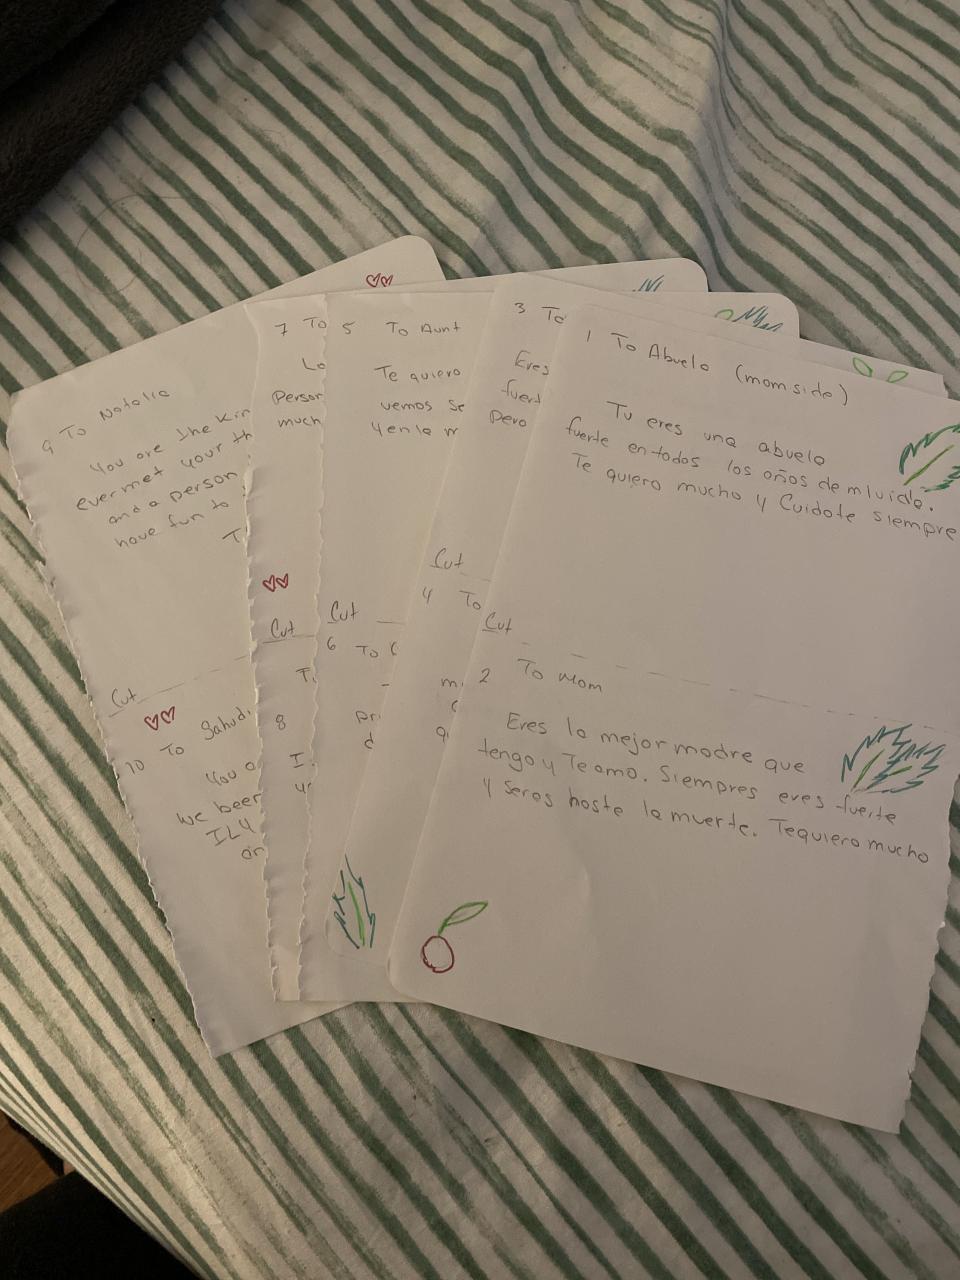 9 To Natalie
You are the kin
ever met your th
and a person
have fun to
T
Cut
10 To Sahud.
You a
we been
ILY
an
7 To
Lo
Person
much
Cut
T.
8
I.
y
5 To Aunt
Te quiero
vemos se
y en la m
Cut
6 To C
pri
d
3 To
Eres
fuert
pero
Cut
4 To
m
q
1 To Abuelo (mom side)
Tu eres una abuelo
fuerte en todos los años de mi vida.
Te quiero mucho y Cuidate siempre
Cut
2 To Mom
Eres la mejor madre que
tengo y Te amo. Siempres eres fuerte
y seras haste la muerte. Te quiero mucho